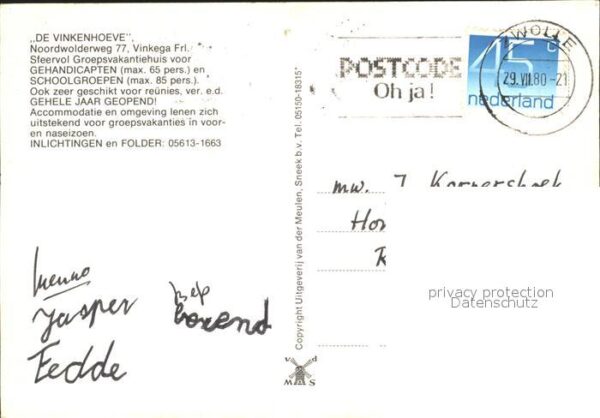 „DE VINKENHOEVE”,
Noordwolderweg 77, Vinkega Frl.
Sfeervol Groepsvakantiehuis voor
GEHANDICAPTEN (max. 65 pers.) en
SCHOOLGROEPEN (max. 85 pers.)
Ook zeer geschikt voor reünies, ver. e.d.
GEHELE JAAR GEOPEND!
Accommodatie en omgeving lenen zich
uitstekend voor groepsvakanties in voor-
en naseizoen.
INLICHTINGEN en FOLDER: 05613-1663
Copyright Uitgeverij van der Meulen, Sneek b.v. Tel. 05150-18315*
POSTCODE
Oh ja!
ZWOLLE
29.VII.80-21
45 c
nederland
mw. J. 
Menno
Jasper
Bep
Berend
Fedde
v d
M S
privacy protection
Datenschutz